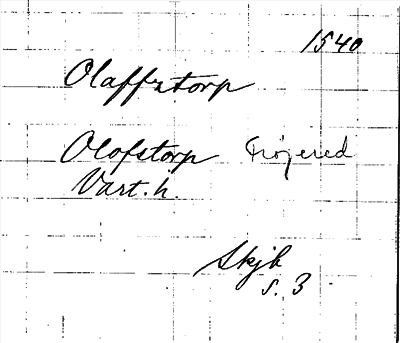 1540
Olaffztorp
Olofstorp Fröjered
Vart. h.
Skjb
s. 3